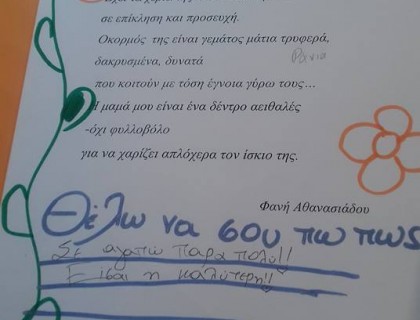 σε επίκληση και προσευχή.
Οκορμός της είναι γεμάτος μάτια τρυφερά,
δακρυσμένα, δυνατά
Ράνια
που κοιτούν με τόση έγνοια γύρω τους…
Η μαμά μου είναι ένα δέντρο αειθαλές
-όχι φυλλοβόλο
για να χαρίζει απλόχερα τον ίσκιο της.
Φανή Αθανασιάδου
Θέλω να σου πω πως
Σε αγαπώ πάρα πολύ!!
Είσαι η καλύτερη!!